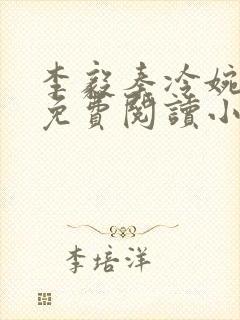 李毅秦冷婉
免費閱讀小
李培洋